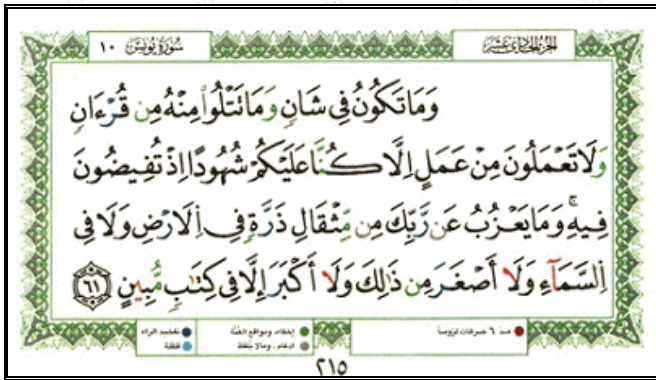 الجزء الحادي عشر
سورة يونس ١٠
وَمَا تَكُونُ فِي شَأْنٍ وَمَا تَتْلُوا۟ مِنْهُ مِن قُرْءَانٍ
وَلَا تَعْمَلُونَ مِنْ عَمَلٍ إِلَّا كُنَّا عَلَيْكُمْ شُهُودًا إِذْ تُفِيضُونَ
فِيهِ ۚ وَمَا يَعْزُبُ عَن رَّبِّكَ مِن مِّثْقَالِ ذَرَّةٍ فِي الْأَرْضِ وَلَا فِي
السَّمَآءِ وَلَآ أَصْغَرَ مِن ذَٰلِكَ وَلَآ أَكْبَرَ إِلَّا فِي كِتَٰبٍ مُّبِينٍ ٦١
مد ٦ حركات لزوماً
إخفاء، ومواقع الغُنَّة
تفخيم الراء
ادغام، ومالا يُلفظ
قلقلة
٢١٥